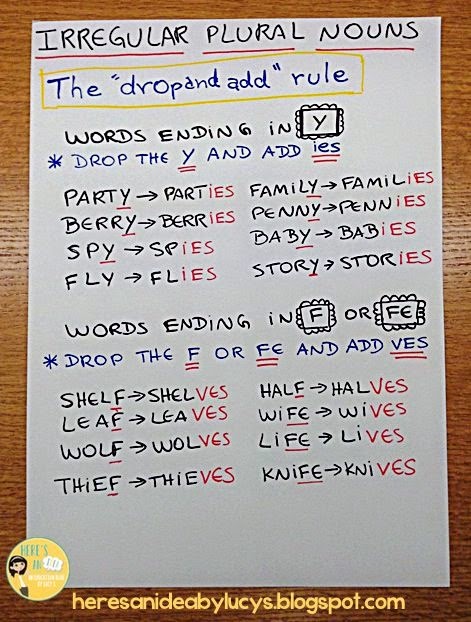 IRREGULAR PLURAL NOUNS
The "drop and add" rule
WORDS ENDING IN Y
* DROP THE Y AND ADD ies
PARTY → PARTIES
BERRY → BERRIES
SPY → SPIES
FLY → FLIES
FAMILY → FAMILIES
PENNY → PENNIES
BABY → BABIES
STORY → STORIES
WORDS ENDING IN F OR FE
* DROP THE F OR FE AND ADD VES
SHELF → SHELVES
LEAF → LEAVES
WOLF → WOLVES
THIEF → THIEVES
HALF → HALVES
WIFE → WIVES
LIFE → LIVES
KNIFE → KNIVES
HERE'S
AN
heresanideabylucys.blogspot.com